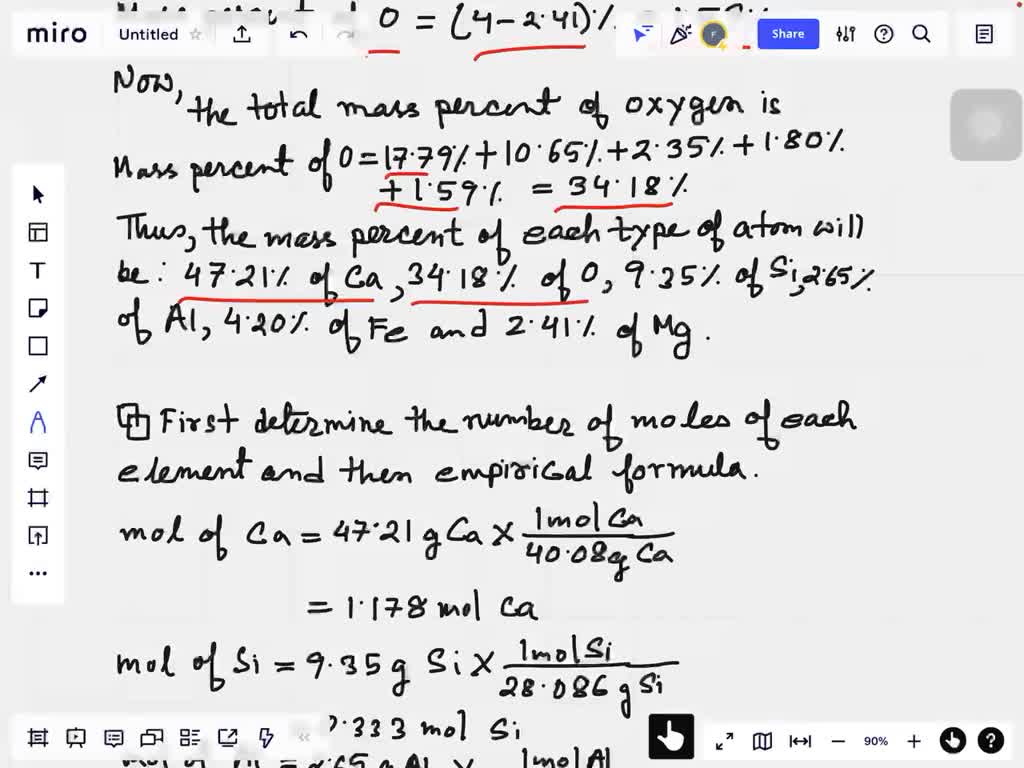 0 = (4-2.41)%
miro Untitled Share
Now,
the total mass percent of oxygen is
Mass percent of 0 = 17.79% + 10.65% + 2.35% + 1.80%
+ 1.59% = 34.18%
Thus, the mass percent of each type of atom will
be: 47.21% of Ca, 34.18% of 0, 9.35% of Si, 2.65%
of Al, 4.20% of Fe and 2.41% of Mg.
First determine the number of moles of each
element and then empirical formula.
mol of Ca = 47.21 g Ca × 1 mol Ca
40.08 g Ca
= 1.178 mol Ca
mol of Si = 9.35 g Si × 1 mol Si
28.086 g Si
.333 mol Si
1 mol Al
90%